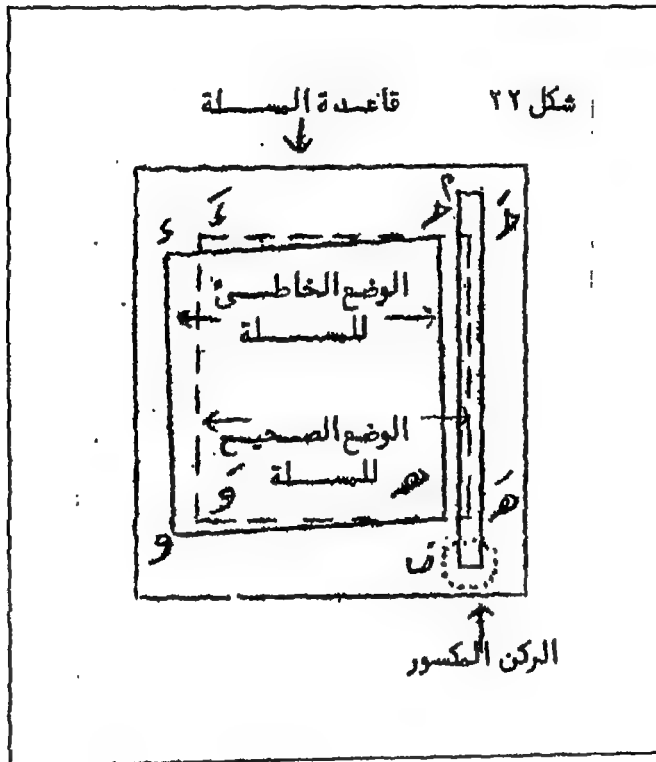 شكل ٢٢
قاعدة المسلة
م
الوضع الخاطئ
للمسلة
الوضع الصحيح
للمسلة
وَ
هـ
هَـ
و
ن
الركن المكسور